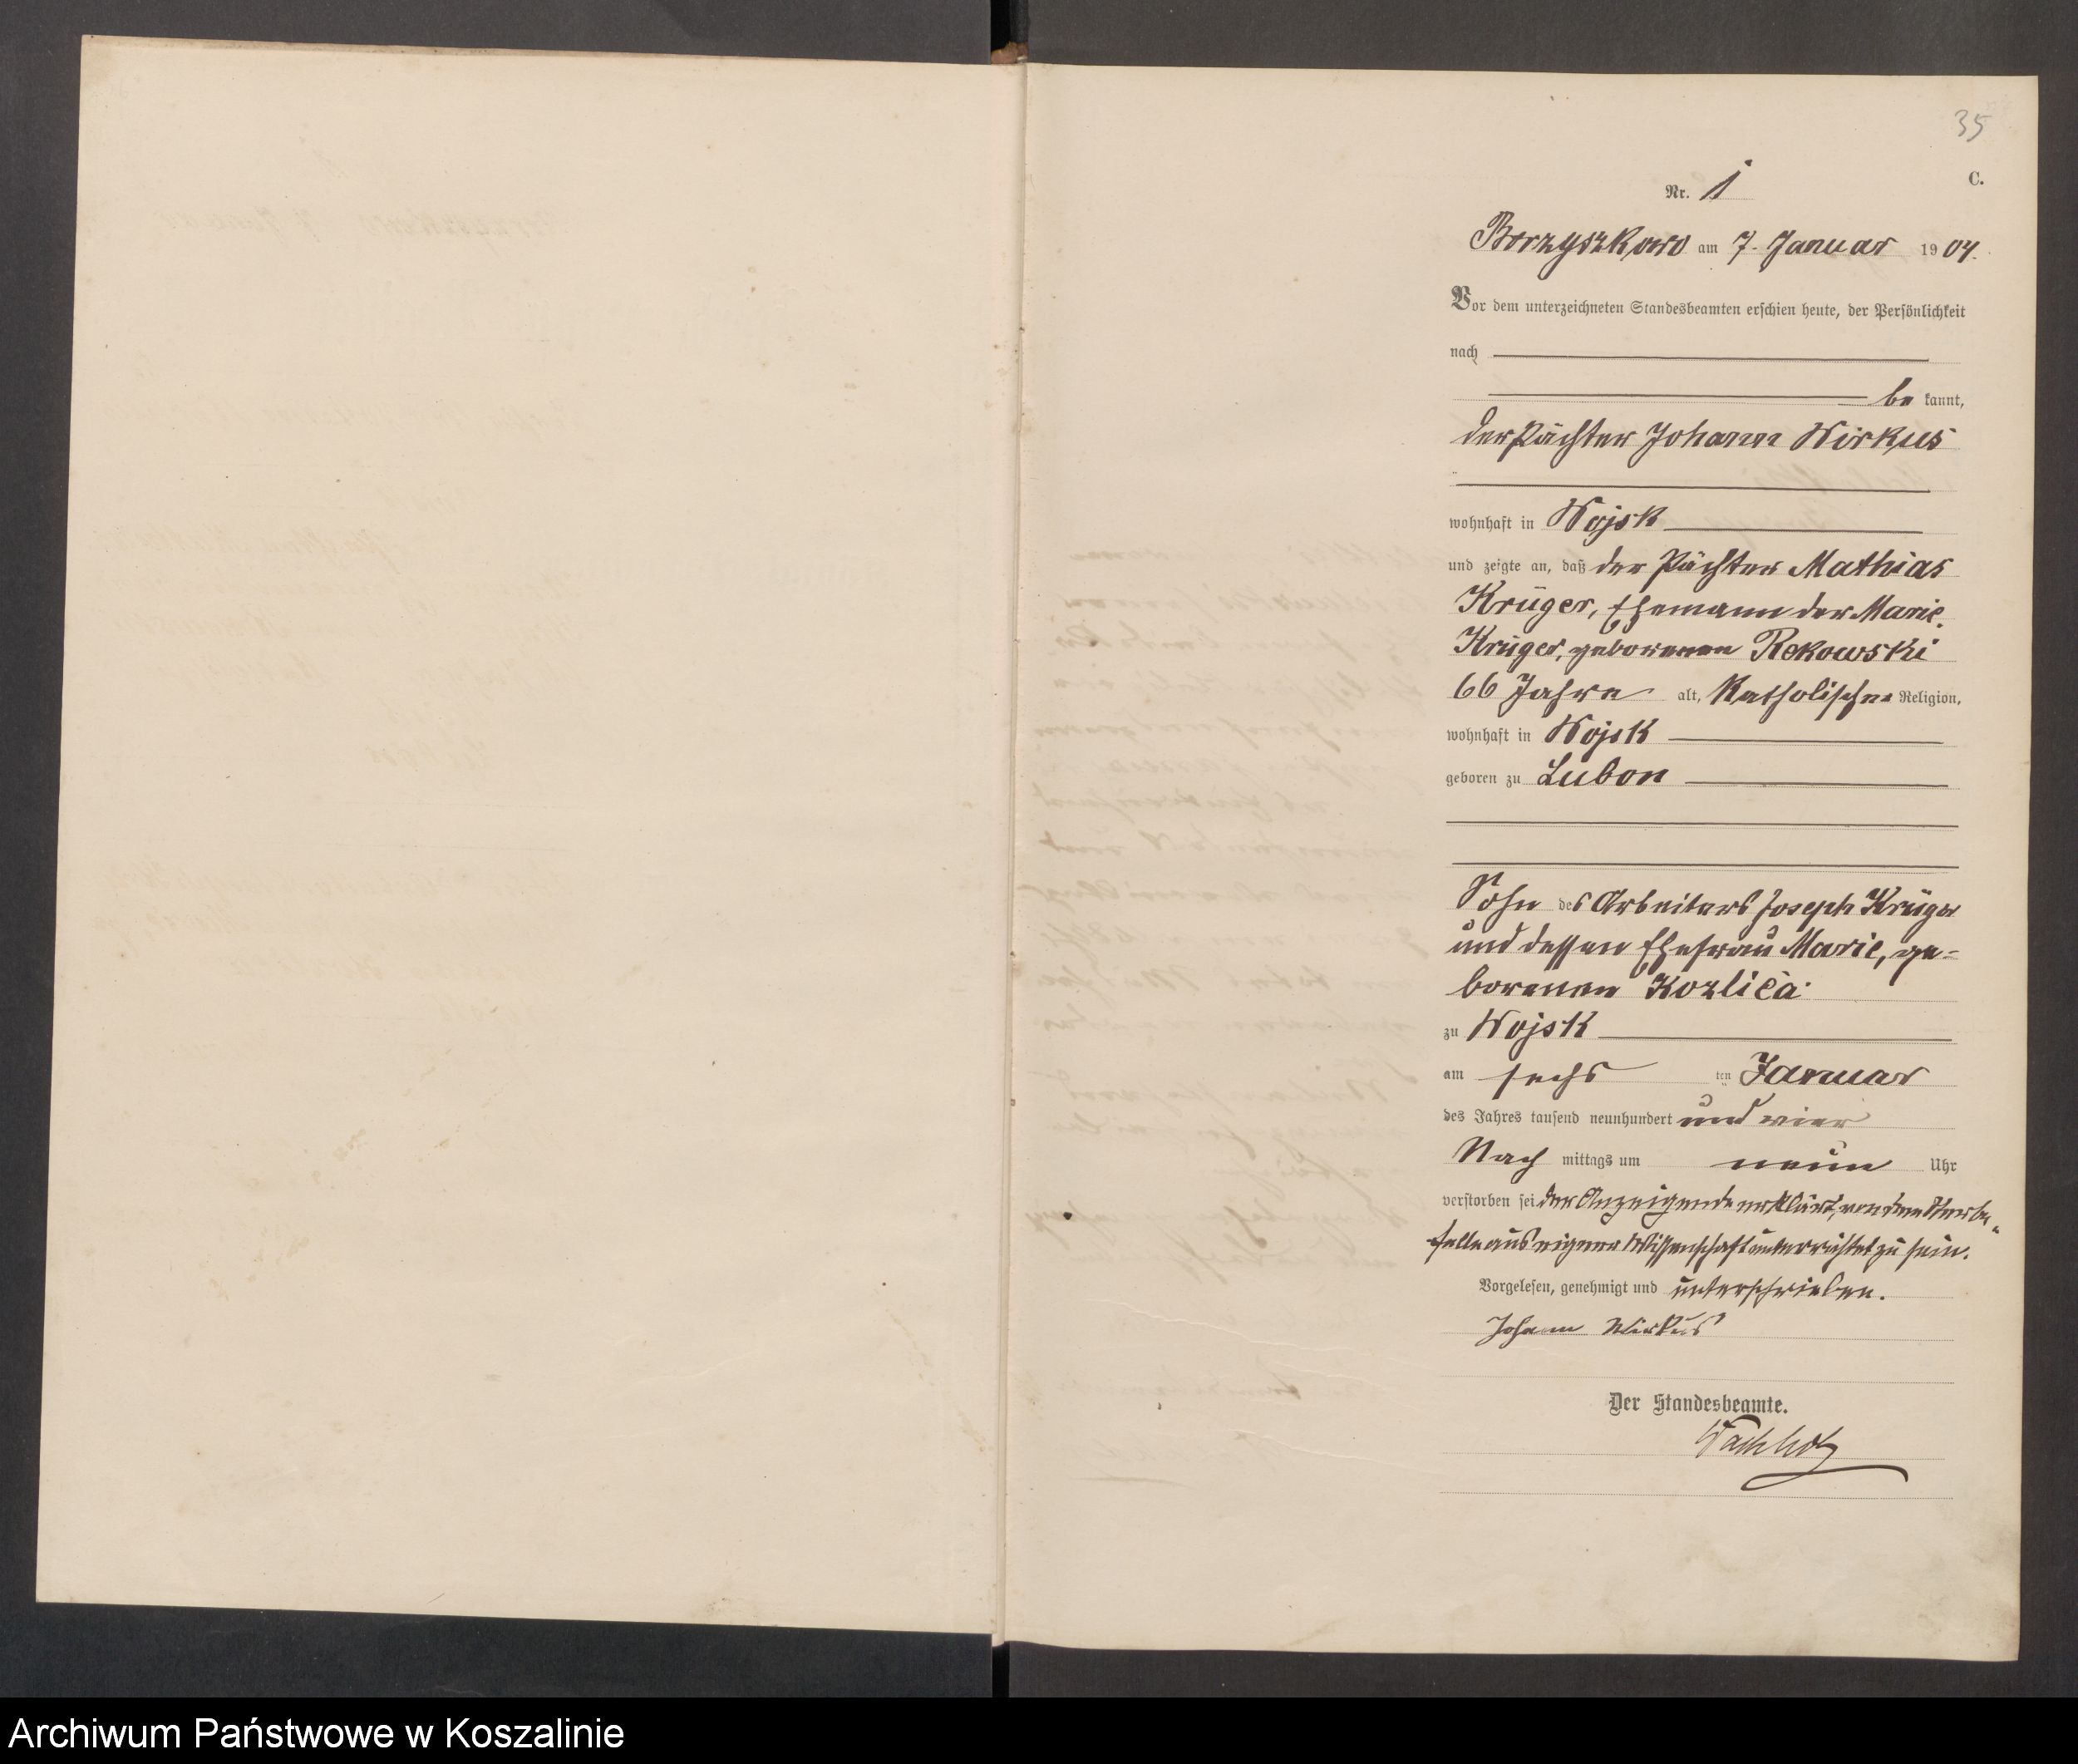 35
C.
Nr. 1
Borzyszkowo am 7. Januar 1904.
Vor dem unterzeichneten Standesbeamten erschien heute, der Persönlichkeit
nach
be kannt,
der Pächter Johann Wirkus
wohnhaft in Wojsk
und zeigte an, daß der Pächter Mathias
Krüger, Ehemann der Marie
Krüger, geborenen Rekowski
66 Jahre alt, Katholischer Religion,
wohnhaft in Wojsk
geboren zu Lubon
Sohn des Arbeiters Joseph Krüger
und dessen Ehefrau Marie, ge-
borenen
zu Wojsk
am sechs ten Januar
des Jahres tausend neunhundert und vier
Nach mittags um neun Uhr
verstorben sei der Anzeigende erklärt, von dem Sterbe-
falle aus eigener Wissenschaft unterrichtet zu sein.
Vorgelesen, genehmigt und unterschrieben.
Johann Wirkus
Der Standesbeamte.
Archiwum Państwowe w Koszalinie